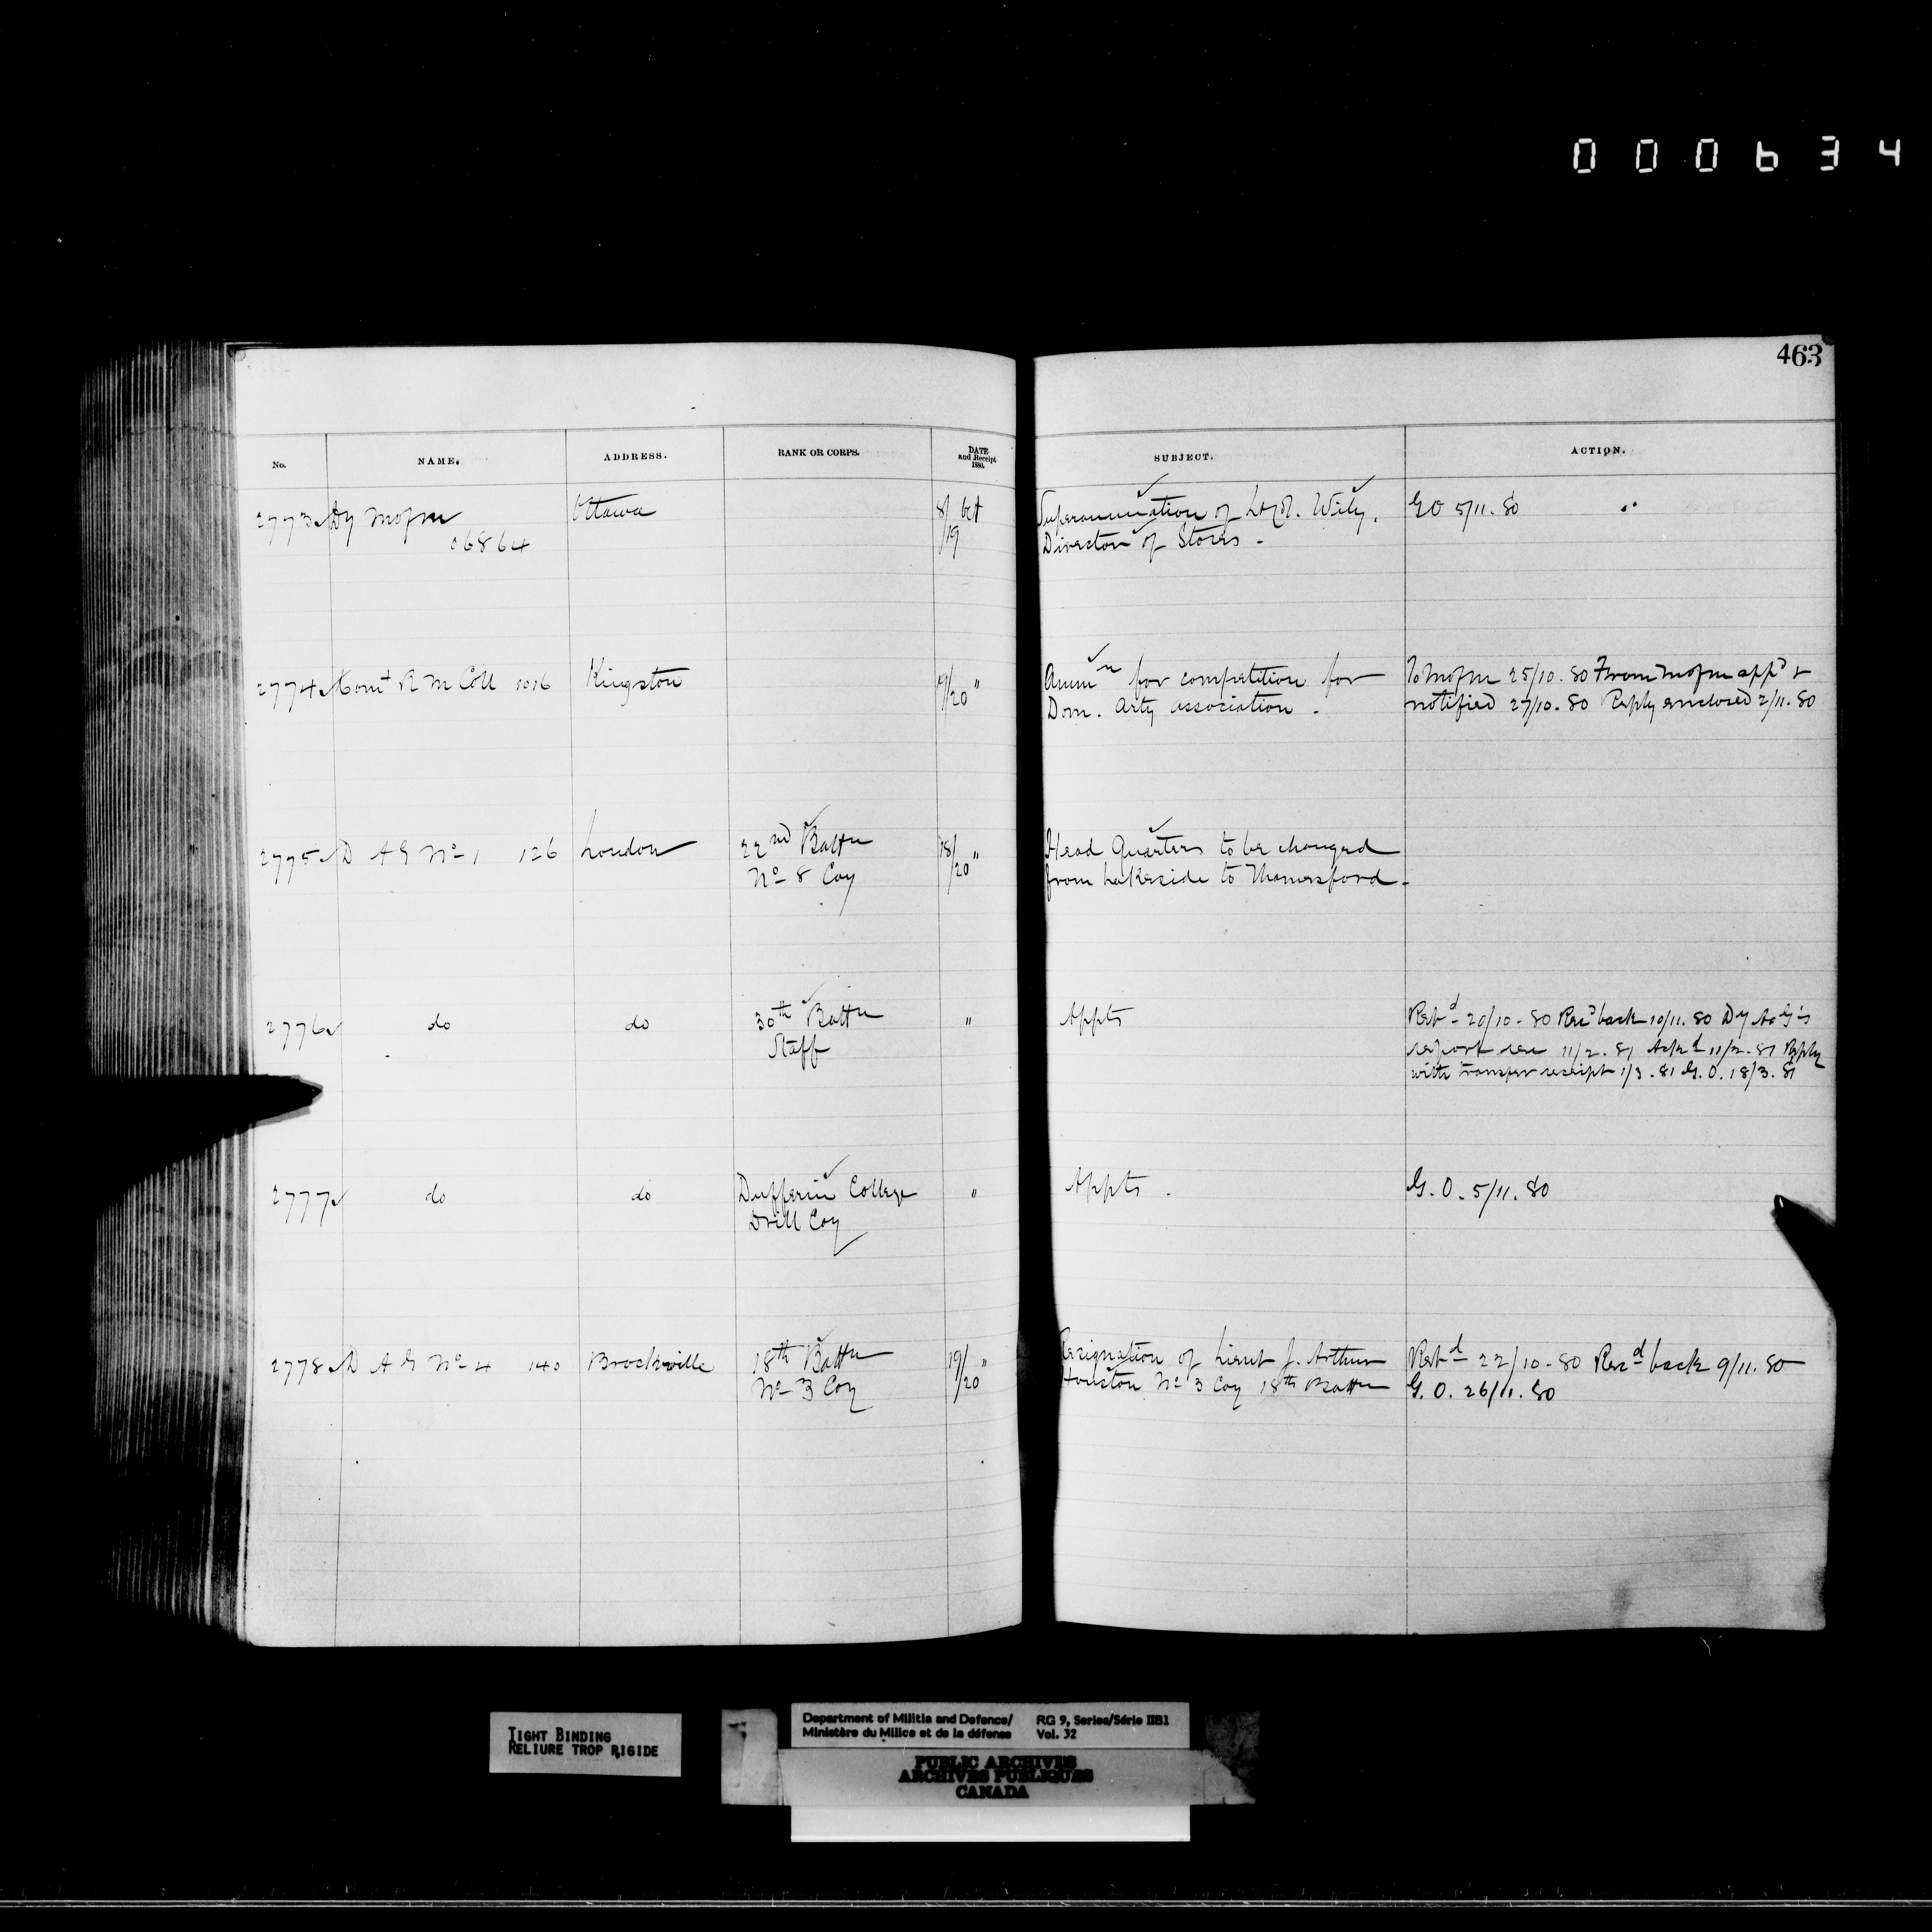 000634
463
No. NAME. ADDRESS. RANK OR CORPS. DATE and Receipt 1880. SUBJECT. ACTION.
2773 Dy Mofm Ottawa 8/ Oct Superannuation of Lt Col. Wily, G O 5/11.80
06864 /19 Director of Stores -
2774 Comt R M Coll 1016 Kingston 19/20 " Ammn for competition for To Mofm 25/10.80 From Mofm appd &
Dom. Arty association. notified 27/10.80 Reply enclosed 2/11.80
2775 D A G No 1 126 London 22nd Battn 18/20 " Head Quarters to be changed
No 8 Coy from Lakeside to Thamesford -
2776 do do 30th Battn " Appts Retd 20/10-80 Recd back 10/11.80 Dy A G's
Staff report rec 11/2.81 Ackd 11/2.81 Reply
with transfer receipt 1/3.81 G.O. 18/3.81
2777 do do Dufferin College " Appts. G.O. 5/11.80
Drill Coy
2778 D A G No 4 140 Brockville 18th Battn 19/20 " Resignation of Lieut J. Arthur Retd 22/10-80 Recd back 9/11.80
No 3 Coy Houston No 3 Coy 18th Battn G.O. 26/11.80
TIGHT BINDING
RELIURE TROP RIGIDE
Department of Militia and Defence/ RG 9, Series/Série IIB1
Ministère du Milice et de la défense Vol. 32
PUBLIC ARCHIVES
ARCHIVES PUBLIQUES
CANADA